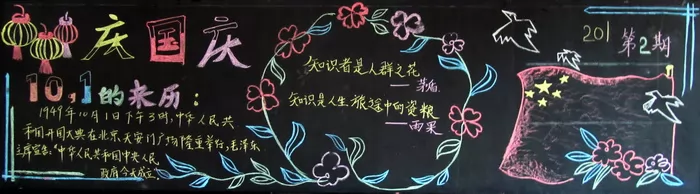 庆国庆
10.1的来历：
1949年10月1日下午3时，中华人民共
和国开国大典在北京天安门广场隆重举行，毛泽东
主席宣告："中华人民共和国中央人民
政府今天成立
知识者是人群之花
——茅盾
知识是人生旅途中的资粮
——雨果
201
第2期